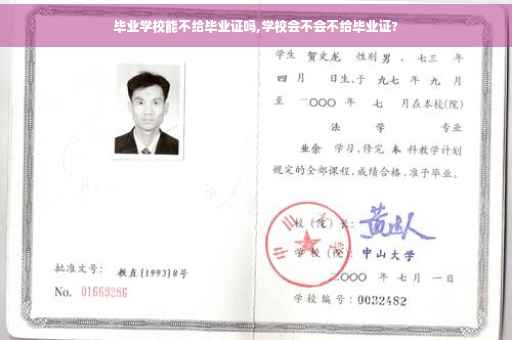 毕业学校能不给毕业证吗,学校会不会不给毕业证?
学生 贺文龙 性别 男 、七三 年
四 月 日生,于 九七 年 九 月
至 二〇〇〇 年 七 月在本校(院)
法 学 专业
业余 学习,修完 本 科教学计划
规定的全部课程,成绩合格,准予毕业。
校(院)长:
学 校(院): 中山大学
二〇〇〇 年 七 月 一 日
批准文号: 教直[1993]8号
No. 01669286
学校编号: 0032482